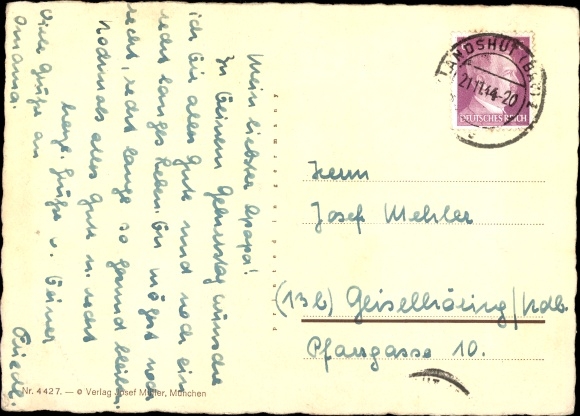 Mein liebster Opapa!
Zu Deinem Geburtstag wünsche
ich Dir alles Gute und noch ein
recht langes Leben. Du mögst noch
recht, recht lange so gesund bleiben.
Nochmals alles Gute u. recht
herzl. Grüße v. Deiner
viele Grüße an
Omama.
LANDSHUT (BAY)
21.11.44-20
DEUTSCHES REICH
Herrn
Josef Mehler
(13b) Geiselhöring/Ndb.
Pfarrgasse 10.
Nr. 4427. — © Verlag Josef Müller, München